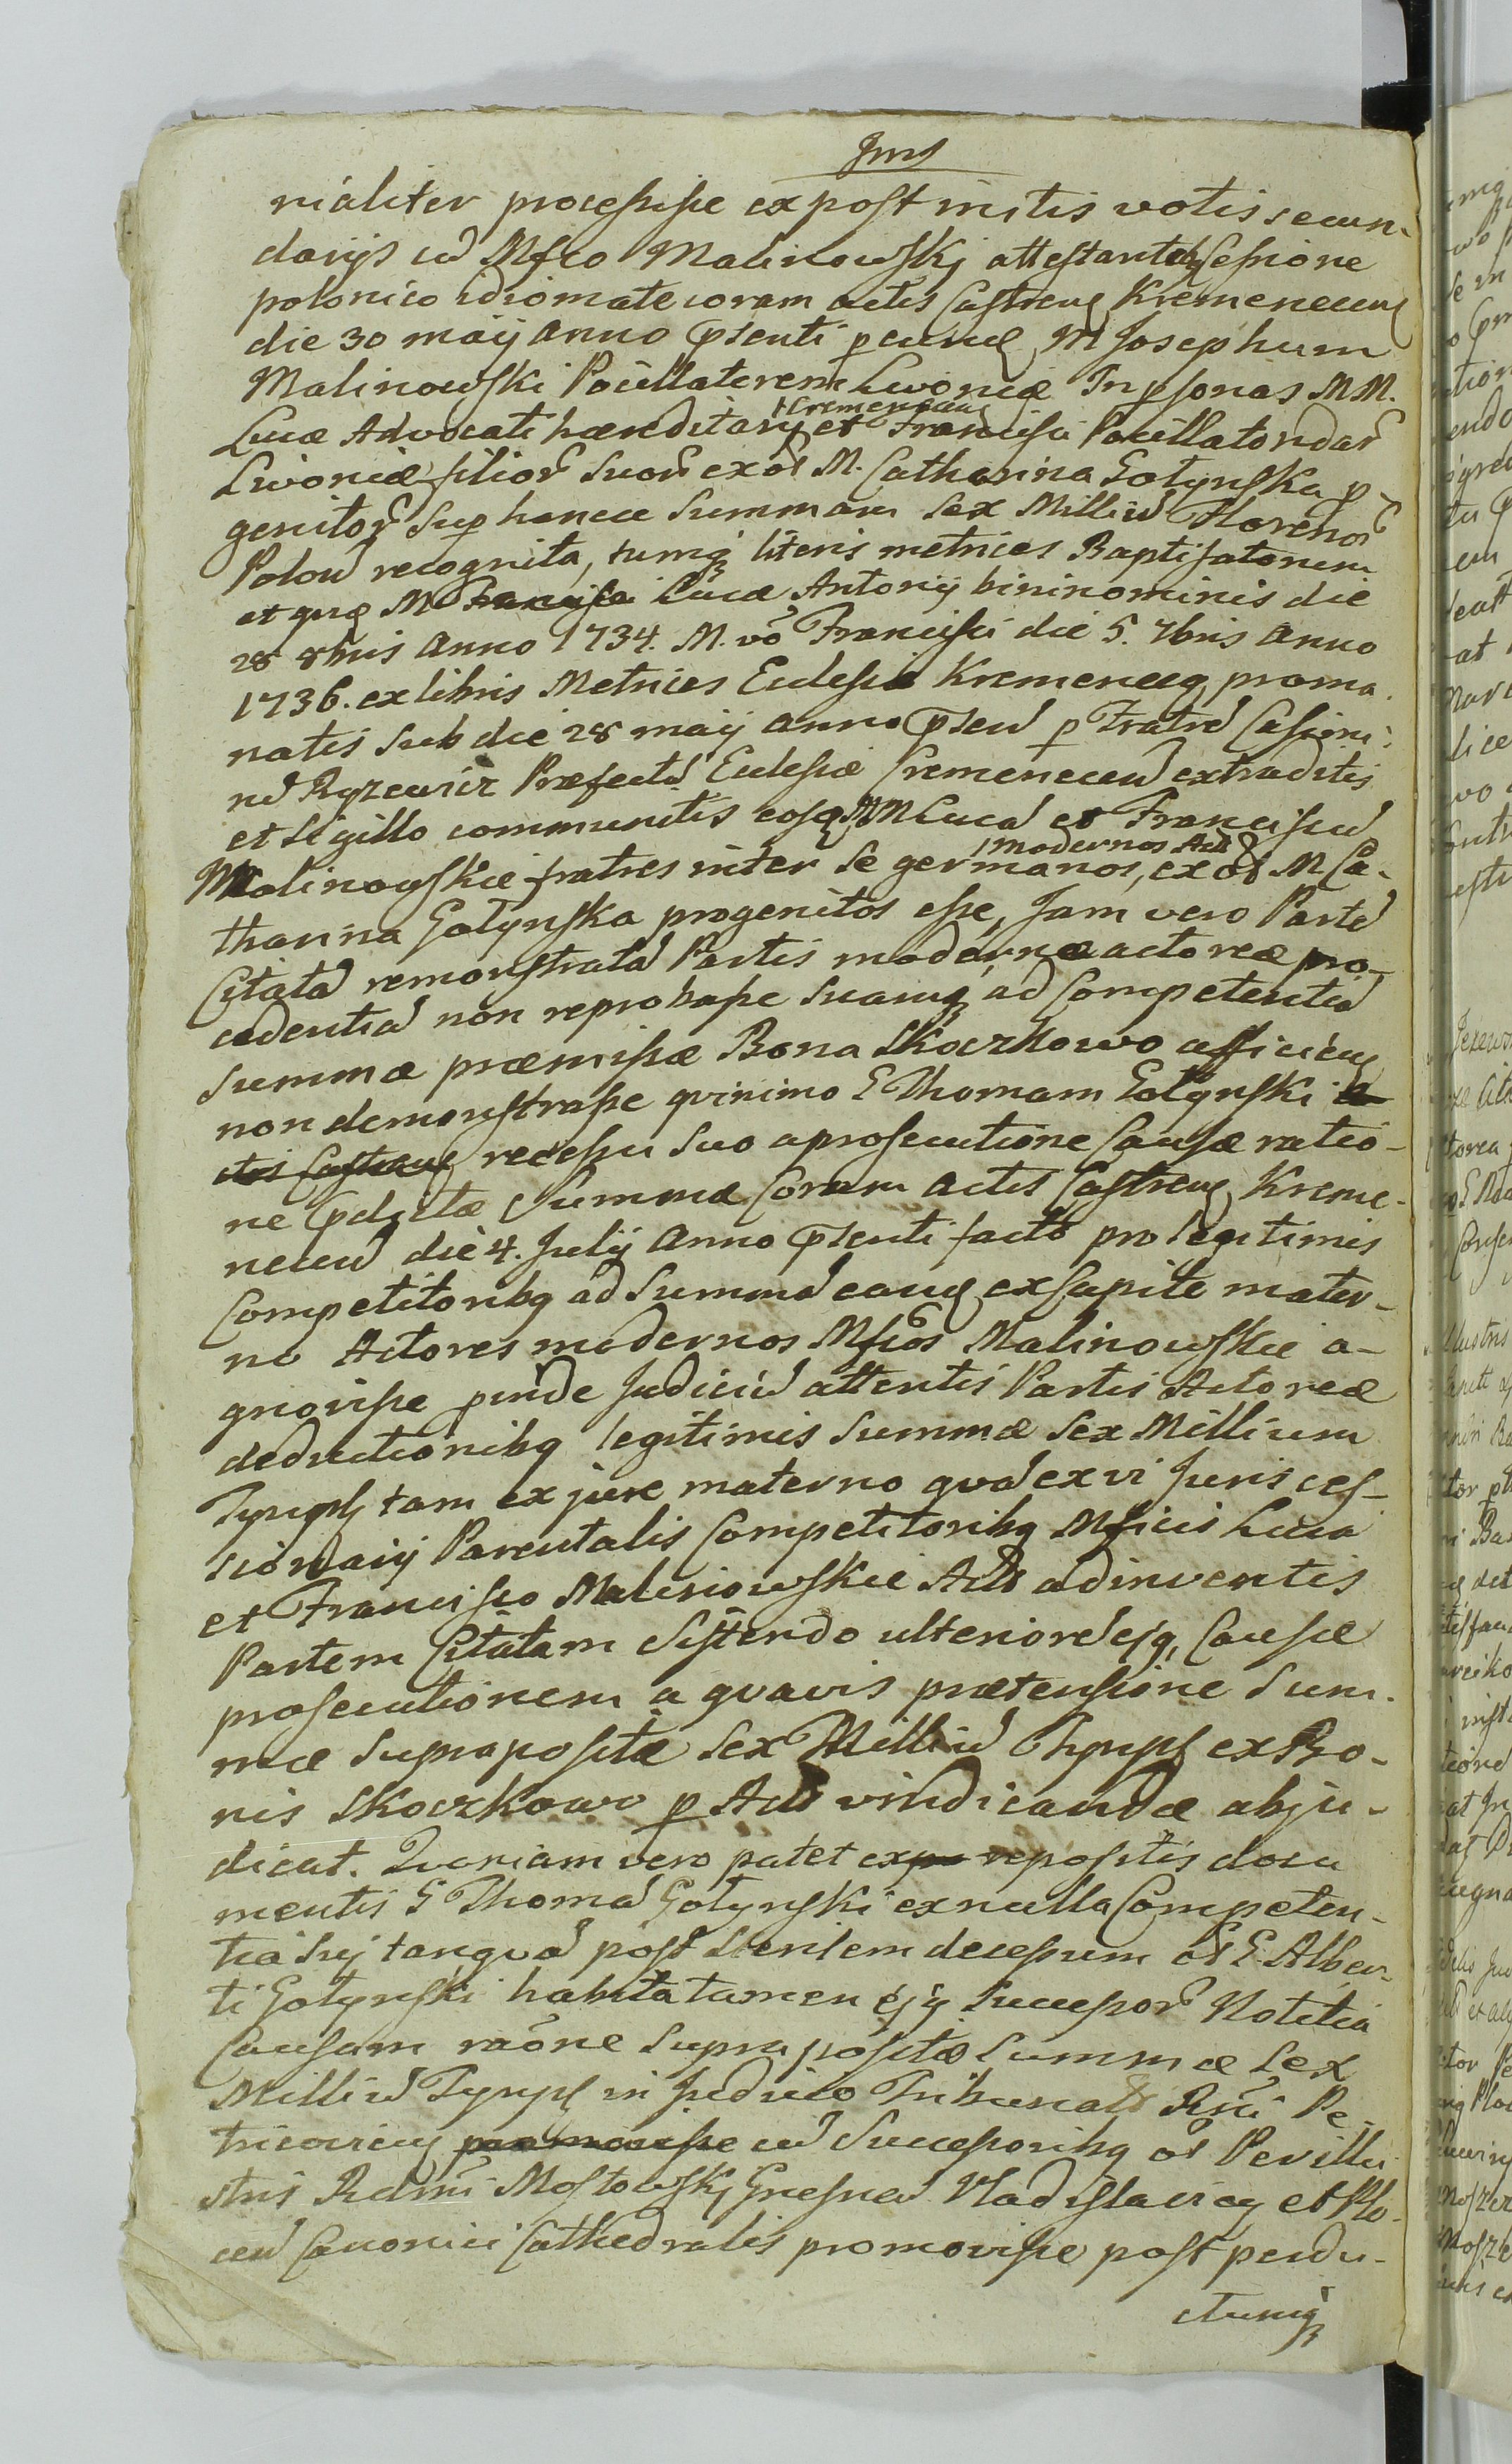 rialiter processisse ex post initis votis secun-
darijs cu Mfco Malinowskj attestante Cessione
polonico idiomate coram actis Castrens Kremenecens
die 30 maij anno psenti p eund M Josephum
Malinowski Pocillatorem Livoniæ In psonas MM.
Lucæ Advocati hæreditarij et Francisci Pocillatoridar
Kremenecens
Livoniæ filior suor ex ol M. Catharina Gołynska p-
genitor sup hancce Summam Sex Milliu Florenor
Polon recognita, tumq literis metrices Baptisatorum
et quæ M. Francisci Lucæ Antonij bininominis die
28 8bris Anno 1734. M. vo Francisci die 5. 7bris Anno
1736. ex libris Metrices Ecclesiæ Kremeneceń proma-
natis sub die 28 maij anno psen p Fratre Casimi-
ru Ryzewicz Præfectu Ecclesiæ Cremenecen extraditis
et sigillo communitis eosq MM Luca et Franciscu
modernos Act
Malinowskie fratres inter se germanos, ex ol M Ca-
tharina Gołynska progenitos esse, Jam vero Parte
Citata remonstrata Partis modernæ actoreæ pro-
cedentia non reprobasse suamq ad Competentia
Summæ præmissæ Bona Skoczkowo afficien
non demonstrasse quinimo G Thomam Gołynski a
ctis Castrens recessu suo a prosecutione Causæ ratio-
ne pdictæ Summæ Coram actis Castrens Kreme-
necen die 4. Julij Anno psenti facto pro legitimis
Competitoribq ad Summa eand ex Capite mater-
no Actores modernos Mfcos Malinowskie a-
gnovisse pinde Judiciu attentis Partis Actoreæ
deductionibq legitimis Summæ Sex Millium
Tymph tam ex jure materno qua ex vi Juris ces-
sionarij Parentalis Competitoribq Mficis Luca
et Francisco Malinowskie Act adinventis
Partem Citatam Sistendo ulteriore ejq Causæ
prosecutionem a quavis prætensione Sum-
mæ Supra positæ Sex Milliu Tymph ex Bo-
nis Skoczkowo p Act vindicandæ abju-
dicat. Quoniam vero patet ex repositis docu
mentis G Thoma Gołynski ex nulla Competen-
tia sui tanqua post sterilem decessum ol G. Alber-
ti Gołynski habita tamen ejq Successor Notitia
Causam raone supra positæ Summæ Sex
Milliu Tymph in Judicio Tribunalis Rni Pe-
tricovien promovisse cu Successoribq ol Perillu-
stris Rdmi Mostowskj Gnesnen Vladislavien et Plo-
cen Canonici Cathedralis promovisse post perdu-
ctumq